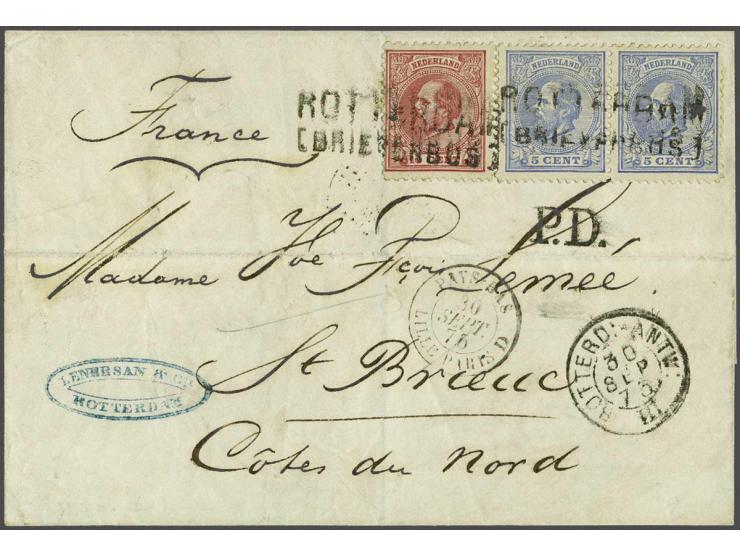 NEDERLAND
NEDERLAND
NEDERLAND
ROTTERDAM
ROTTERDAM
(BRIEVENBUS)
(BRIEVENBUS)
5 CENT
5 CENT
France
P.D.
Madame Fçois Lemée
PAYS-BAS
30
SEPT.
75
LILLE PARIS D
ROTTERD:-ANTW:
30
SEP
75
III
St Brieuc
& Co
ROTTERDAM
Côtes du Nord